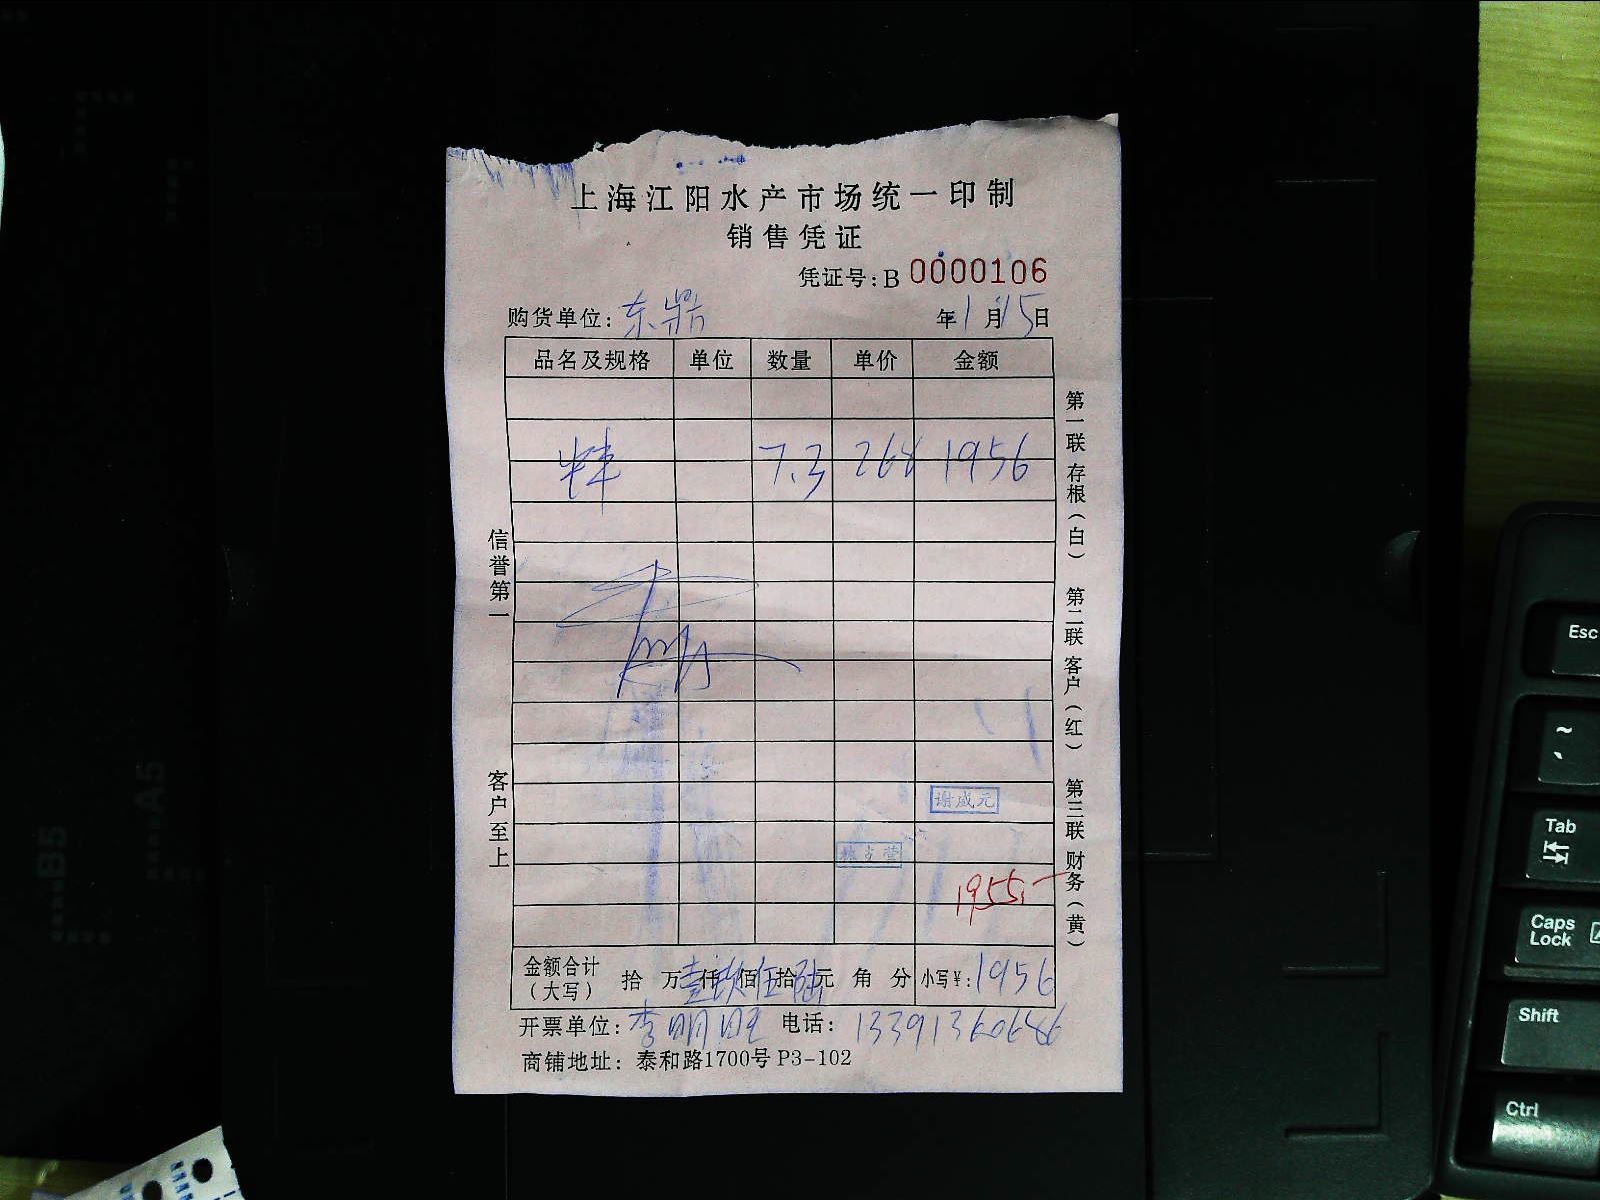 上海江阳水产市场统一印制
销售凭证
凭证号:B 0000106
购货单位: 东鼎 年1月15日
品名及规格 单位 数量 单价 金额
7.3 268 1956
信誉第一
客户至上
第一联 存根(白) 第二联 客户(红) 第三联 财务(黄)
谢成元
1955.-
金额合计(大写) 拾 万壹仟玖佰伍拾陆元 角 分 小写¥:1956
开票单位: 李明旺 电话: 13391360686
商铺地址: 泰和路1700号 P3-102
B5
A5
Esc
~
Tab
Caps Lock
Shift
Ctrl